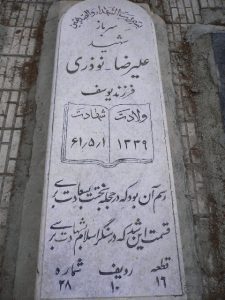 سرباز
شهید
علیرضا - نوذری
فرزند یوسف
ولادت شهادت
۱۳۳۹ ۶۱/۵/۱
رسم آن بود که در حجله بخت
قسمت این شد که در سنگر اسلام شهادت برسی
قطعه ردیف شماره
۱۶ ۱۰ ۲۸